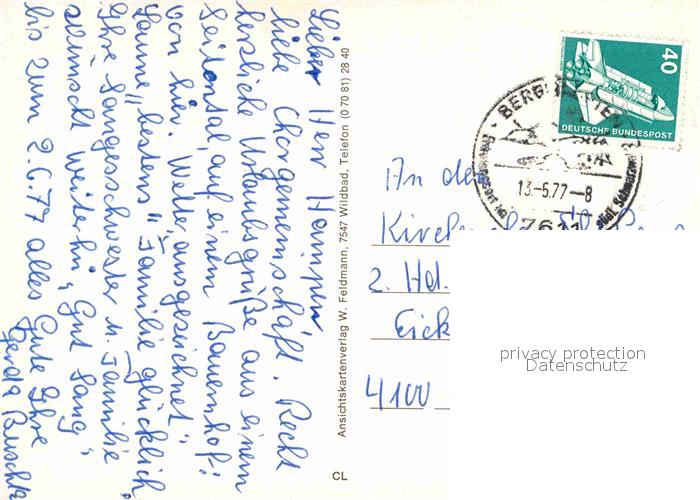 Lieber Herr Hannpen
liebe Chorgemeinschaft. Recht
herzliche Urlaubsgrüße aus einem
Seitental, auf einem Bauernhof:
von hier. Wetter ausgezeichnet"
Laune "bestens" Familie glücklich,
Ihre Sangesschwester u. Familie
wünscht weiterhin "Gut Sang"
bis zum 2.6.77 alles Gute Ihre
Gerda
Ansichtskartenverlag W. Feldmann, 7547 Wildbad, Telefon (0 70 81) 28 40
CL
40
DEUTSCHE BUNDESPOST
13.-5.77-8
761
An den
Kirchen
z. Hd.
Eick
4100
privacy protection
Datenschutz